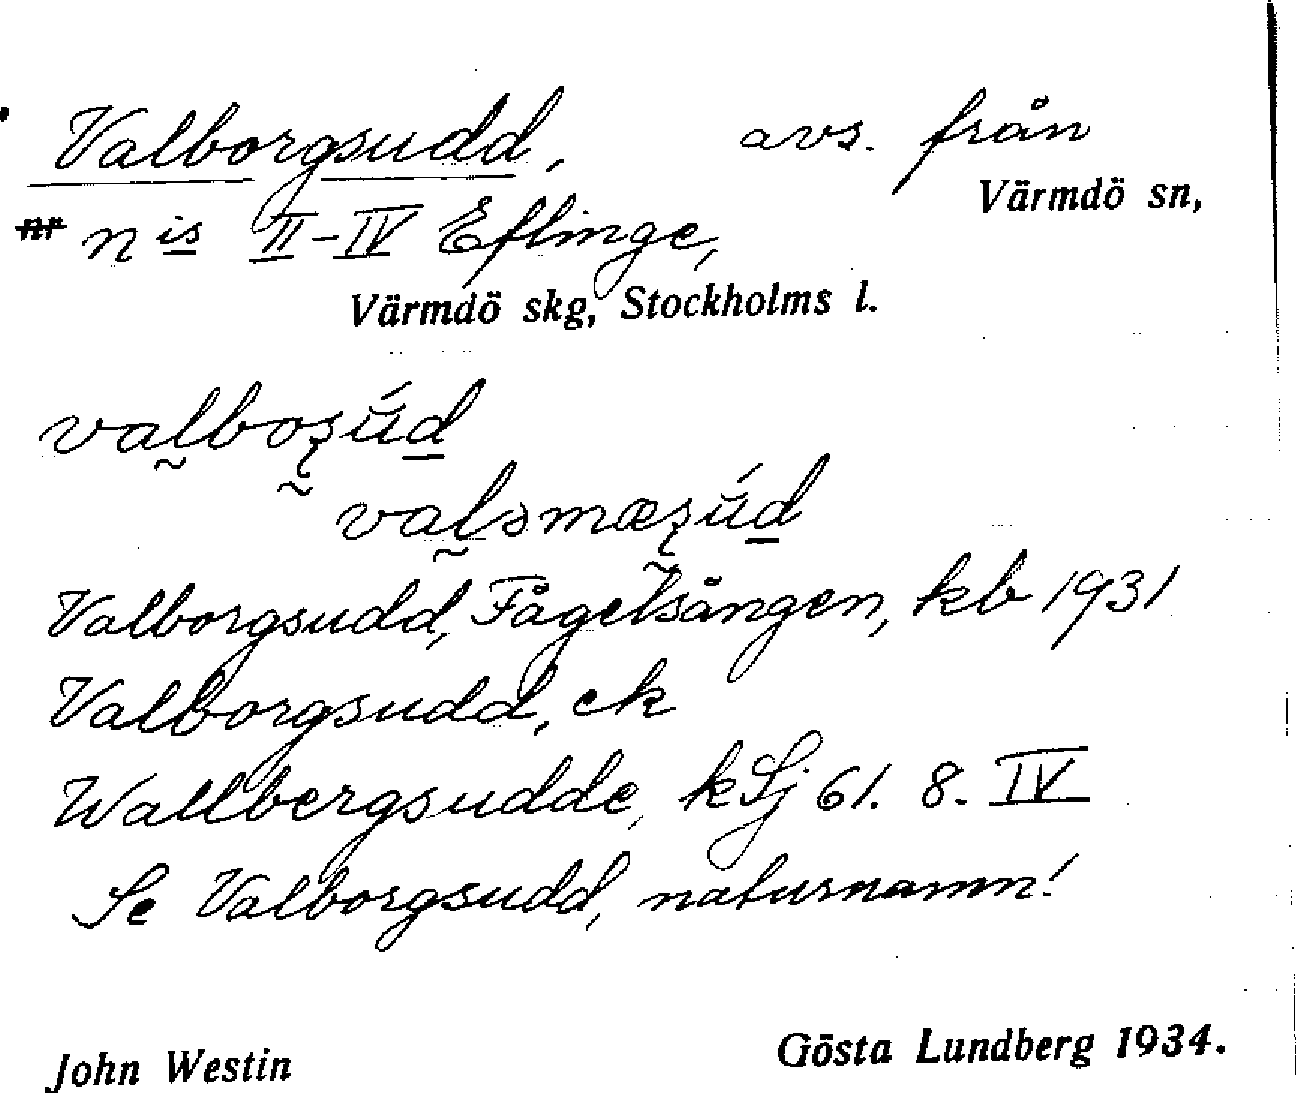 Valborgsudd, avs. från
Värmdö sn,
nr n is II-IV Eflinge,
Värmdö skg, Stockholms l.
Valborgsudd, Fågelsången, kb 1931
Valborgsudd, ek
Wallbergsudde, kSj 61. 8. IV
Se Valborgsudd, naturnamn!
John Westin Gösta Lundberg 1934.